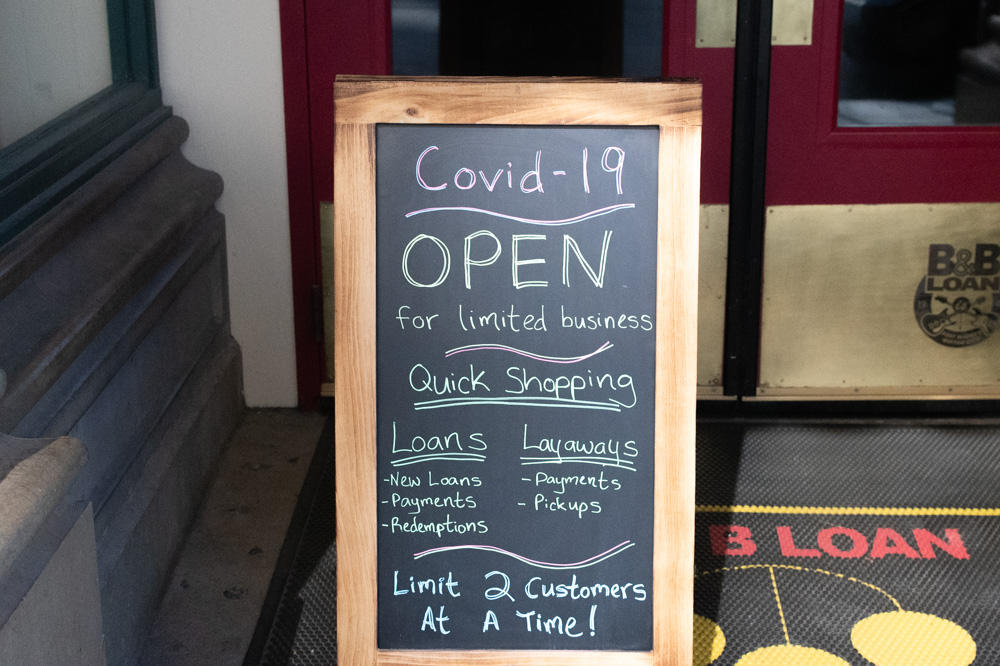 Covid-19
OPEN
for limited business
Quick Shopping
Loans
-New Loans
-Payments
-Redemptions
Layaways
-Payments
- Pickups
Limit 2 Customers
At A Time!
B&B
LOAN
B LOAN